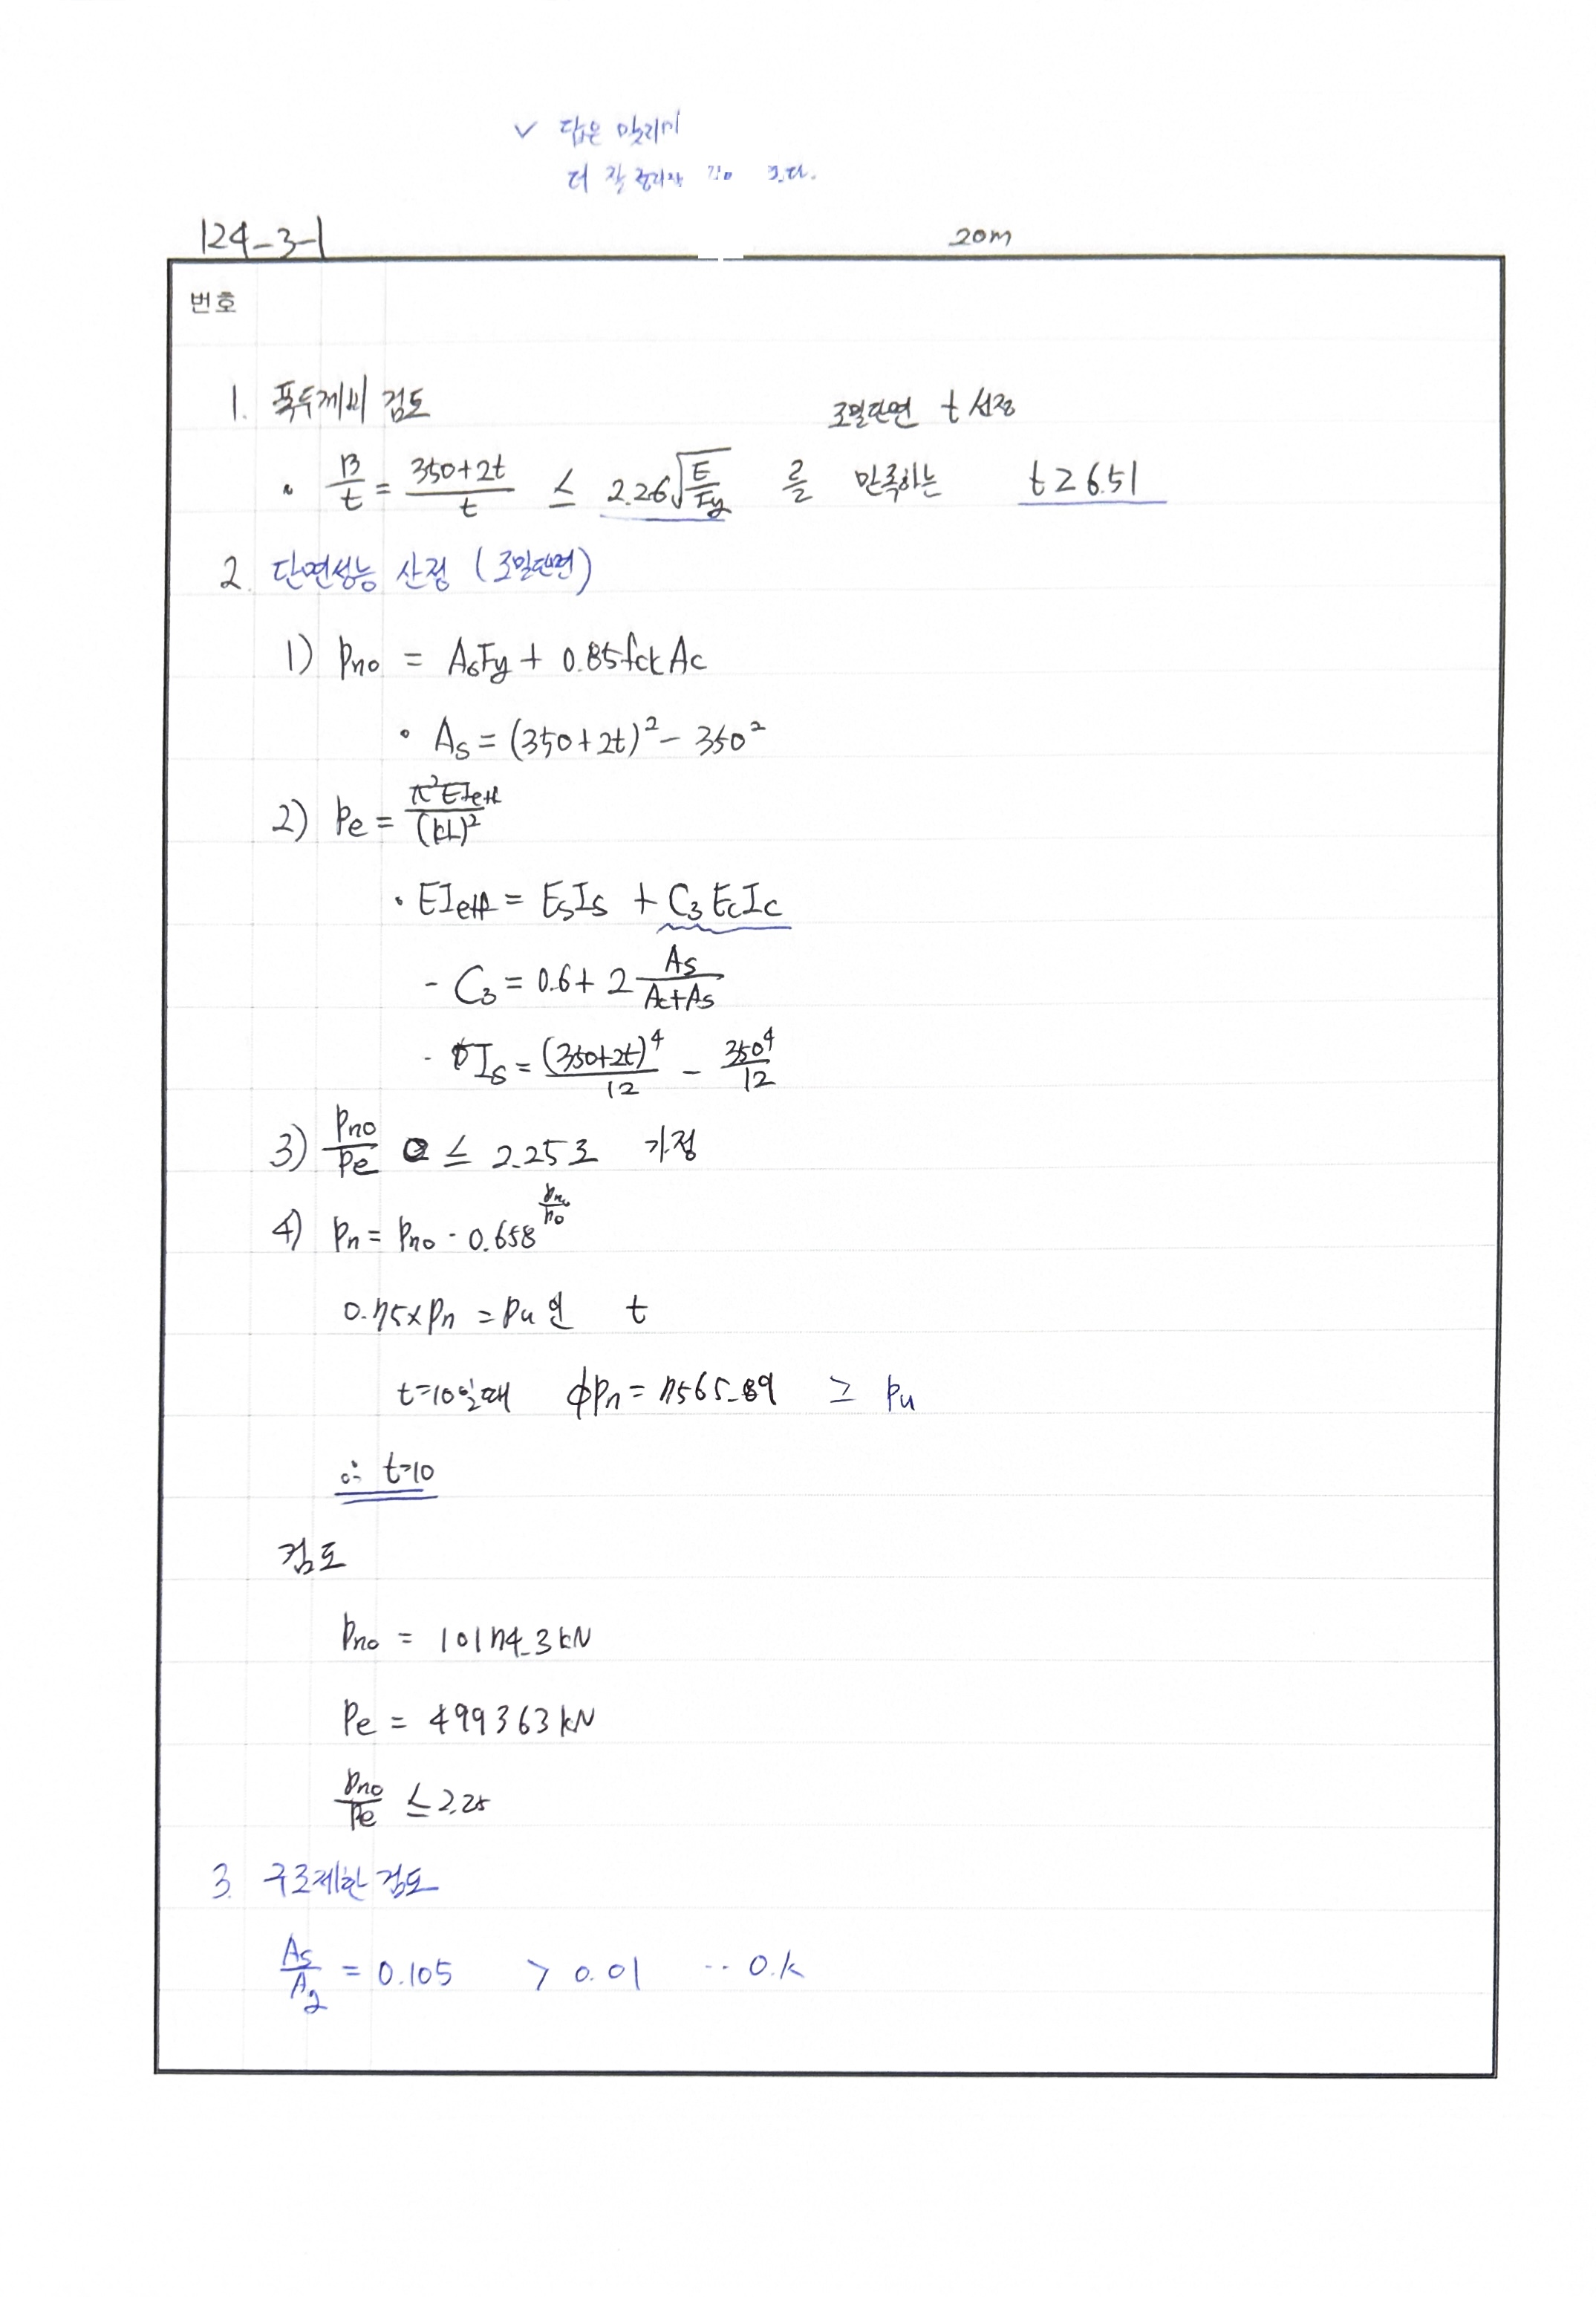 ✓ 답은 맞지만
더 잘 정리
124-3-1 20m
번호
1. 폭두께비 검토 조밀단면 t 산정
• B/t = (350+2t)/t ≤ 2.26√(E/Fy) 를 만족하는 t≥6.51
2. 단면성능 산정 (조밀단면)
1) Pno = AsFy + 0.85fckAc
• As = (350+2t)² - 350²
2) Pe = π²EIeff/(kL)²
• EIeff = EsIs + C3EcIc
- C3 = 0.6 + 2 As/(Ac+As)
- Is = (350+2t)⁴/12 - 350⁴/12
3) Pno/Pe ≤ 2.25로 가정
4) Pn = Pno · 0.658^(Pno/Pe)
0.75×Pn = Pu인 t
t=10일때 ΦPn = 7565.89 ≥ Pu
∴ t=10
검토
Pno = 10174.3kN
Pe = 499363kN
Pno/Pe ≤ 2.25
3. 구조제한 검토
As/Ag = 0.105 > 0.01 ·· O.k